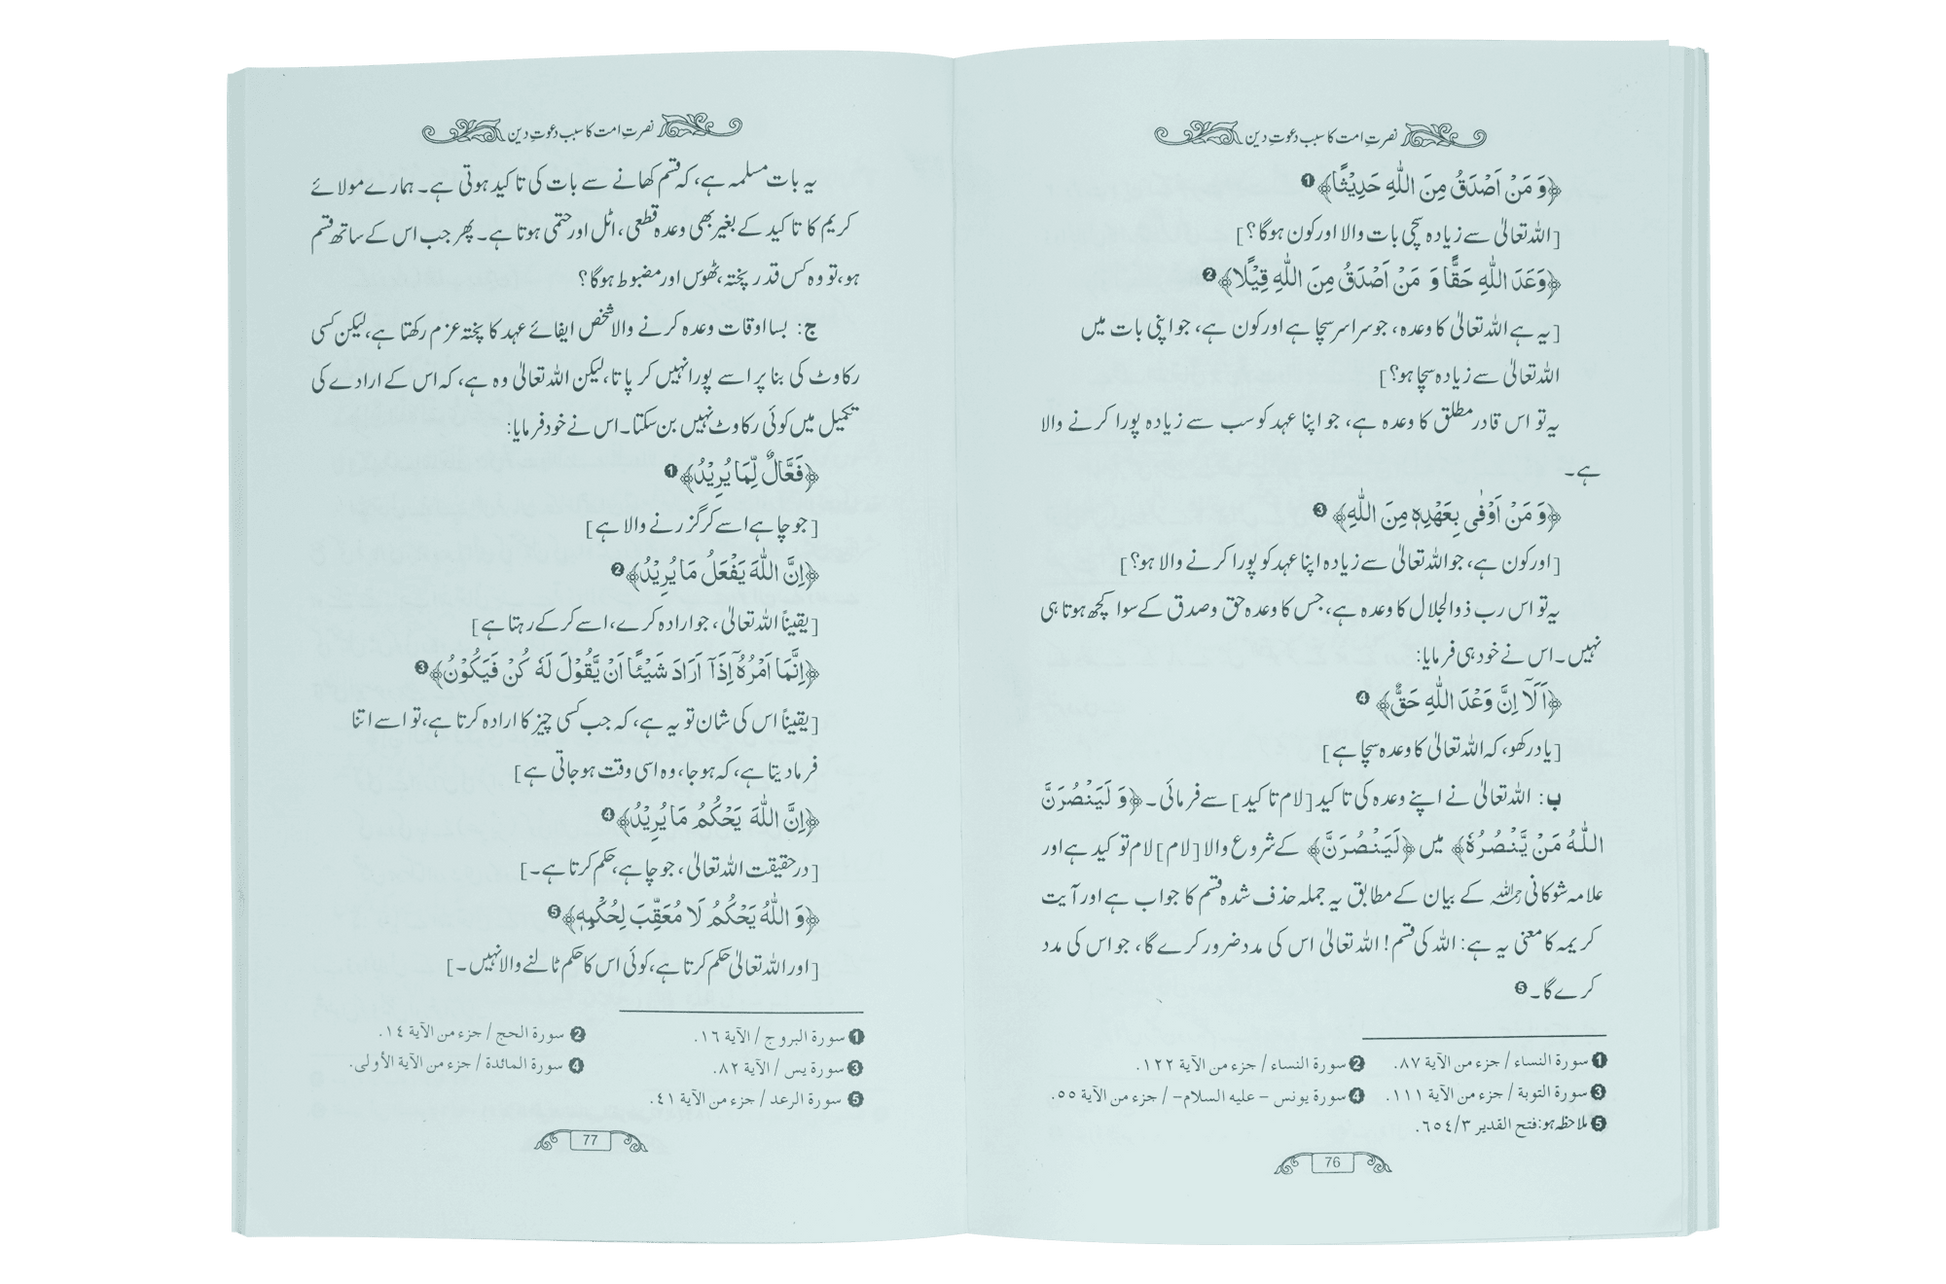 نصرتِ امت کا سبب دعوتِ دین
﴿وَ مَنْ اَصْدَقُ مِنَ اللّٰهِ حَدِیْثًا﴾❶
[اللہ تعالیٰ سے زیادہ سچی بات والا اور کون ہوگا؟]
﴿وَعَدَ اللّٰهِ حَقًّا وَ مَنْ اَصْدَقُ مِنَ اللّٰهِ قِیْلًا﴾❷
[یہ ہے اللہ تعالیٰ کا وعدہ، جو سراسر سچا ہے اور کون ہے، جو اپنی بات میں
اللہ تعالیٰ سے زیادہ سچا ہو؟]
یہ تو اس قادر مطلق کا وعدہ ہے، جو اپنا عہد کو سب سے زیادہ پورا کرنے والا
ہے۔
﴿وَ مَنْ اَوْفٰی بِعَهْدِهٖ مِنَ اللّٰهِ﴾❸
[اور کون ہے، جو اللہ تعالیٰ سے زیادہ اپنا عہد کو پورا کرنے والا ہو؟]
یہ تو اس رب ذوالجلال کا وعدہ ہے، جس کا وعدہ حق و صدق کے سوا کچھ ہوتا ہی
نہیں۔ اس نے خود ہی فرمایا:
﴿اَلَآ اِنَّ وَعْدَ اللّٰهِ حَقٌّ﴾❹
[یاد رکھو، کہ اللہ تعالیٰ کا وعدہ سچا ہے]
ب: اللہ تعالیٰ نے اپنے وعدہ کی تاکید [لام تاکید] سے فرمائی۔ ﴿وَ لَیَنْصُرَنَّ
اللّٰهُ مَنْ یَّنْصُرُهٗ﴾ میں ﴿لَیَنْصُرَنَّ﴾ کے شروع والا [لام] لام توکید ہے اور
علامہ شوکانی رحمہ اللہ کے بیان کے مطابق یہ جملہ حذف شدہ قسم کا جواب ہے اور آیت
کریمہ کا معنی یہ ہے: اللہ کی قسم! اللہ تعالیٰ اس کی مدد ضرور کرے گا، جو اس کی مدد
کرے گا۔❺
❶ سورة النساء / جزء من الآية ٨٧. ❷ سورة النساء / جزء من الآية ١٢٢.
❸ سورة التوبة / جزء من الآية ١١١. ❹ سورة يونس - عليه السلام- / جزء من الآية ٥٥.
❺ ملاحظہ ہو: فتح القدير ٦٥٤/٣.
76
نصرتِ امت کا سبب دعوتِ دین
یہ بات مسلمہ ہے، کہ قسم کھانے سے بات کی تاکید ہوتی ہے۔ ہمارے مولائے
کریم کا تاکید کے بغیر بھی وعدہ قطعی، اٹل اور حتمی ہوتا ہے۔ پھر جب اس کے ساتھ قسم
ہو، تو وہ کس قدر پختہ، ٹھوس اور مضبوط ہوگا؟
ج: بسا اوقات وعدہ کرنے والا شخص ایفائے عہد کا پختہ عزم رکھتا ہے، لیکن کسی
رکاوٹ کی بنا پر اسے پورا نہیں کر پاتا، لیکن اللہ تعالیٰ وہ ہے، کہ اس کے ارادے کی
تکمیل میں کوئی رکاوٹ نہیں بن سکتا۔ اس نے خود فرمایا:
﴿فَعَّالٌ لِّمَا یُرِیْدُ﴾❶
[جو چاہے اسے کر گزرنے والا ہے]
﴿اِنَّ اللّٰهَ یَفْعَلُ مَا یُرِیْدُ﴾❷
[یقیناً اللہ تعالیٰ، جو ارادہ کرے، اسے کر کے رہتا ہے]
﴿اِنَّمَا اَمْرُهٗٓ اِذَآ اَرَادَ شَیْئًا اَنْ یَّقُوْلَ لَهٗ كُنْ فَیَكُوْنُ﴾❸
[یقیناً اس کی شان تو یہ ہے، کہ جب کسی چیز کا ارادہ کرتا ہے، تو اسے اتنا
فرما دیتا ہے، کہ ہو جا، وہ اسی وقت ہو جاتی ہے]
﴿اِنَّ اللّٰهَ یَحْكُمُ مَا یُرِیْدُ﴾❹
[درحقیقت اللہ تعالیٰ، جو چاہے، حکم کرتا ہے۔]
﴿وَ اللّٰهُ یَحْكُمُ لَا مُعَقِّبَ لِحُكْمِهٖ﴾❺
[اور اللہ تعالیٰ حکم کرتا ہے، کوئی اس کا حکم ٹالنے والا نہیں۔]
❶ سورة البروج / الآية ١٦. ❷ سورة الحج / جزء من الآية ١٤.
❸ سورة يس / الآية ٨٢. ❹ سورة المائدة / جزء من الآية الأولى.
❺ سورة الرعد / جزء من الآية ٤١.
77